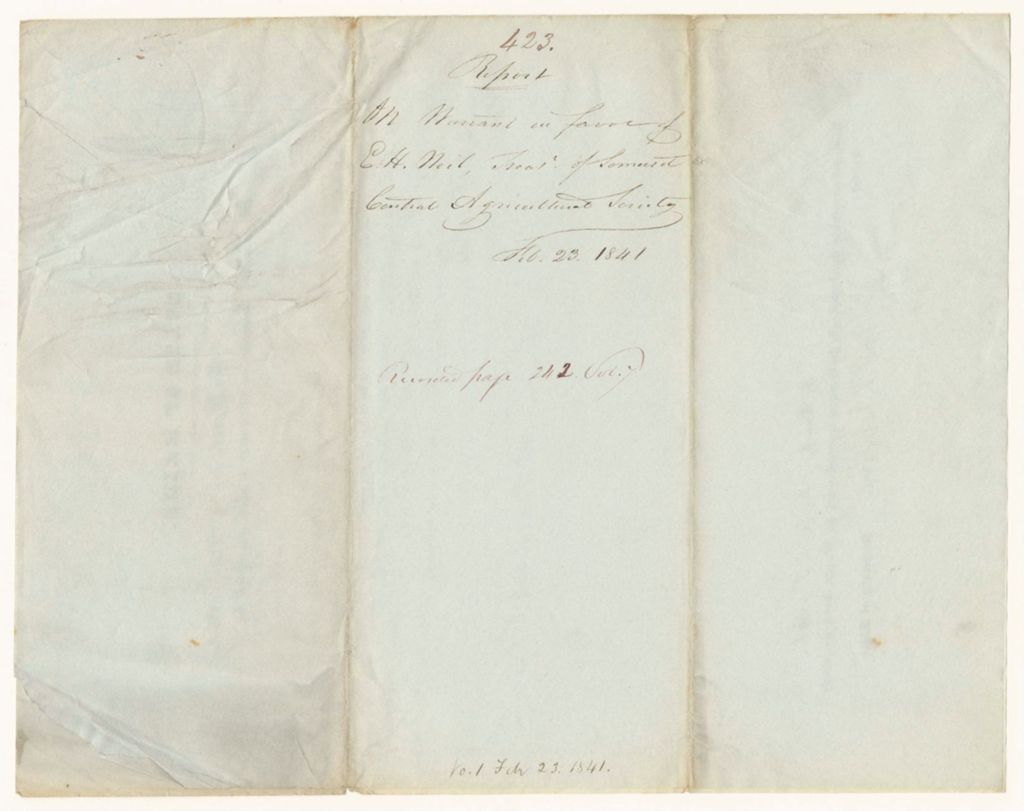 423.
Report
On Warrant in favor of
E.H. Neil, Treasr. of Somerset
Central Agricultural Society
Feb. 23. 1841
Recorded page 242. Vol. 7
No. 1 Feb 23. 1841.